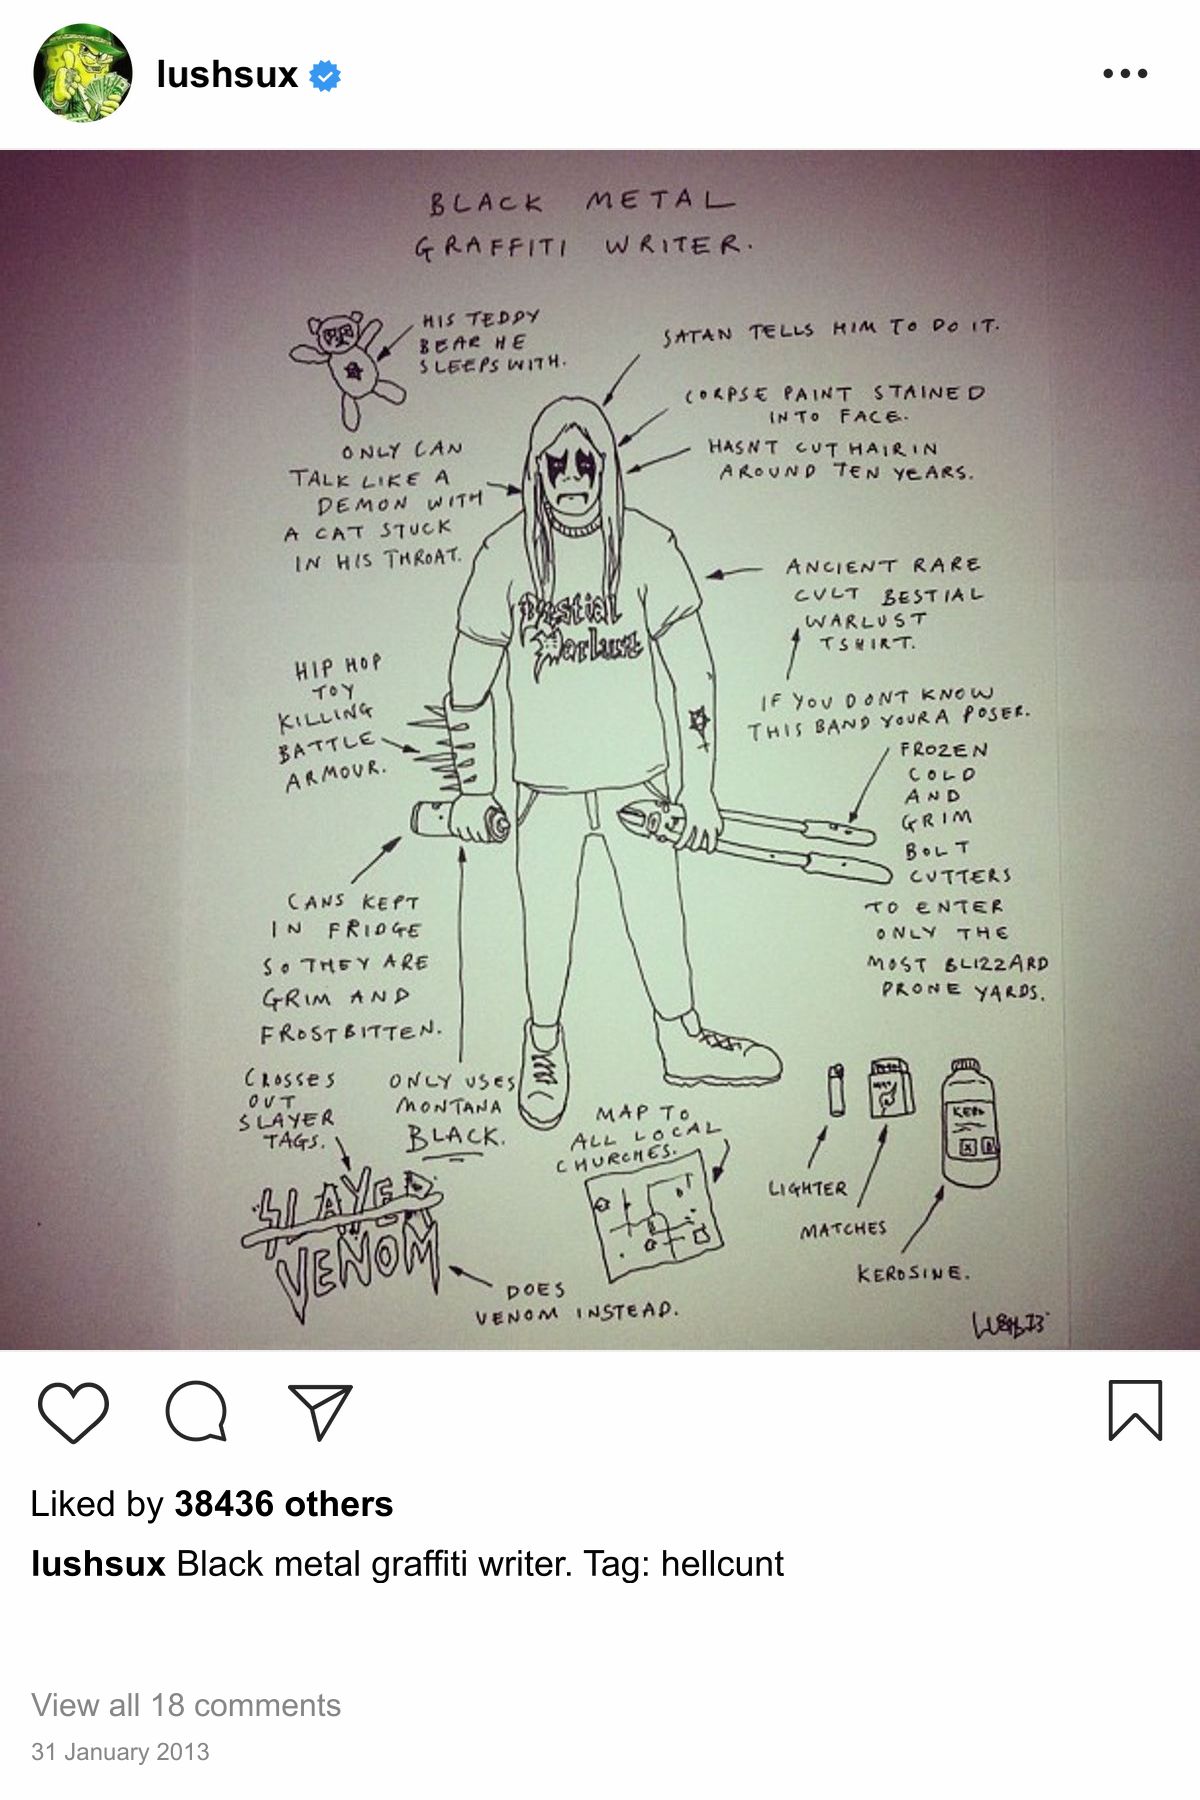 lushsux
BLACK METAL
GRAFFITI WRITER.
HIS TEDDY
BEAR HE
SLEEPS WITH.
SATAN TELLS HIM TO DO IT.
CORPSE PAINT STAINED
INTO FACE.
HASNT CUT HAIR IN
AROUND TEN YEARS.
ONLY CAN
TALK LIKE A
DEMON WITH
A CAT STUCK
IN HIS THROAT.
ANCIENT RARE
CULT BESTIAL
WARLUST
TSHIRT.
Bestial
Warlust
IF YOU DONT KNOW
THIS BAND YOUR A POSER.
HIP HOP
TOY
KILLING
BATTLE
ARMOUR.
FROZEN
COLD
AND
GRIM
BOLT
CUTTERS
TO ENTER
ONLY THE
MOST BLIZZARD
PRONE YARDS.
CANS KEPT
IN FRIDGE
SO THEY ARE
GRIM AND
FROSTBITTEN.
CROSSES
OUT
SLAYER
TAGS.
ONLY USES
MONTANA
BLACK.
MAP TO
ALL LOCAL
CHURCHES.
KERO
LIGHTER
MATCHES
KEROSINE.
SLAYER
VENOM
DOES
VENOM INSTEAD.
Liked by 38436 others
lushsux Black metal graffiti writer. Tag: hellcunt
View all 18 comments
31 January 2013